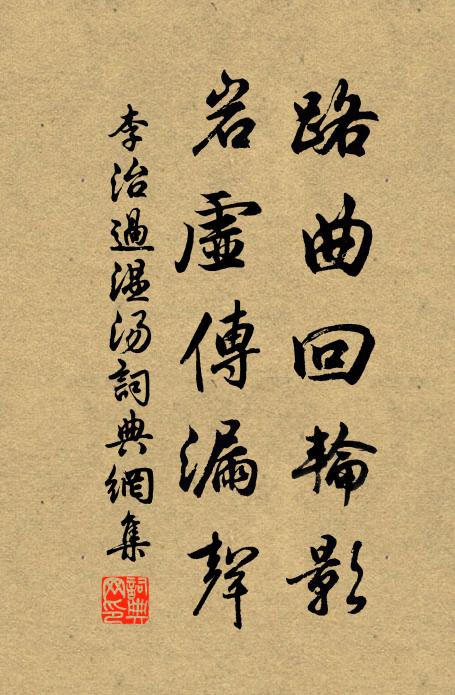 路曲回輪影
岩虛傳漏聲
李治過温湯詞典網集
詞典網印